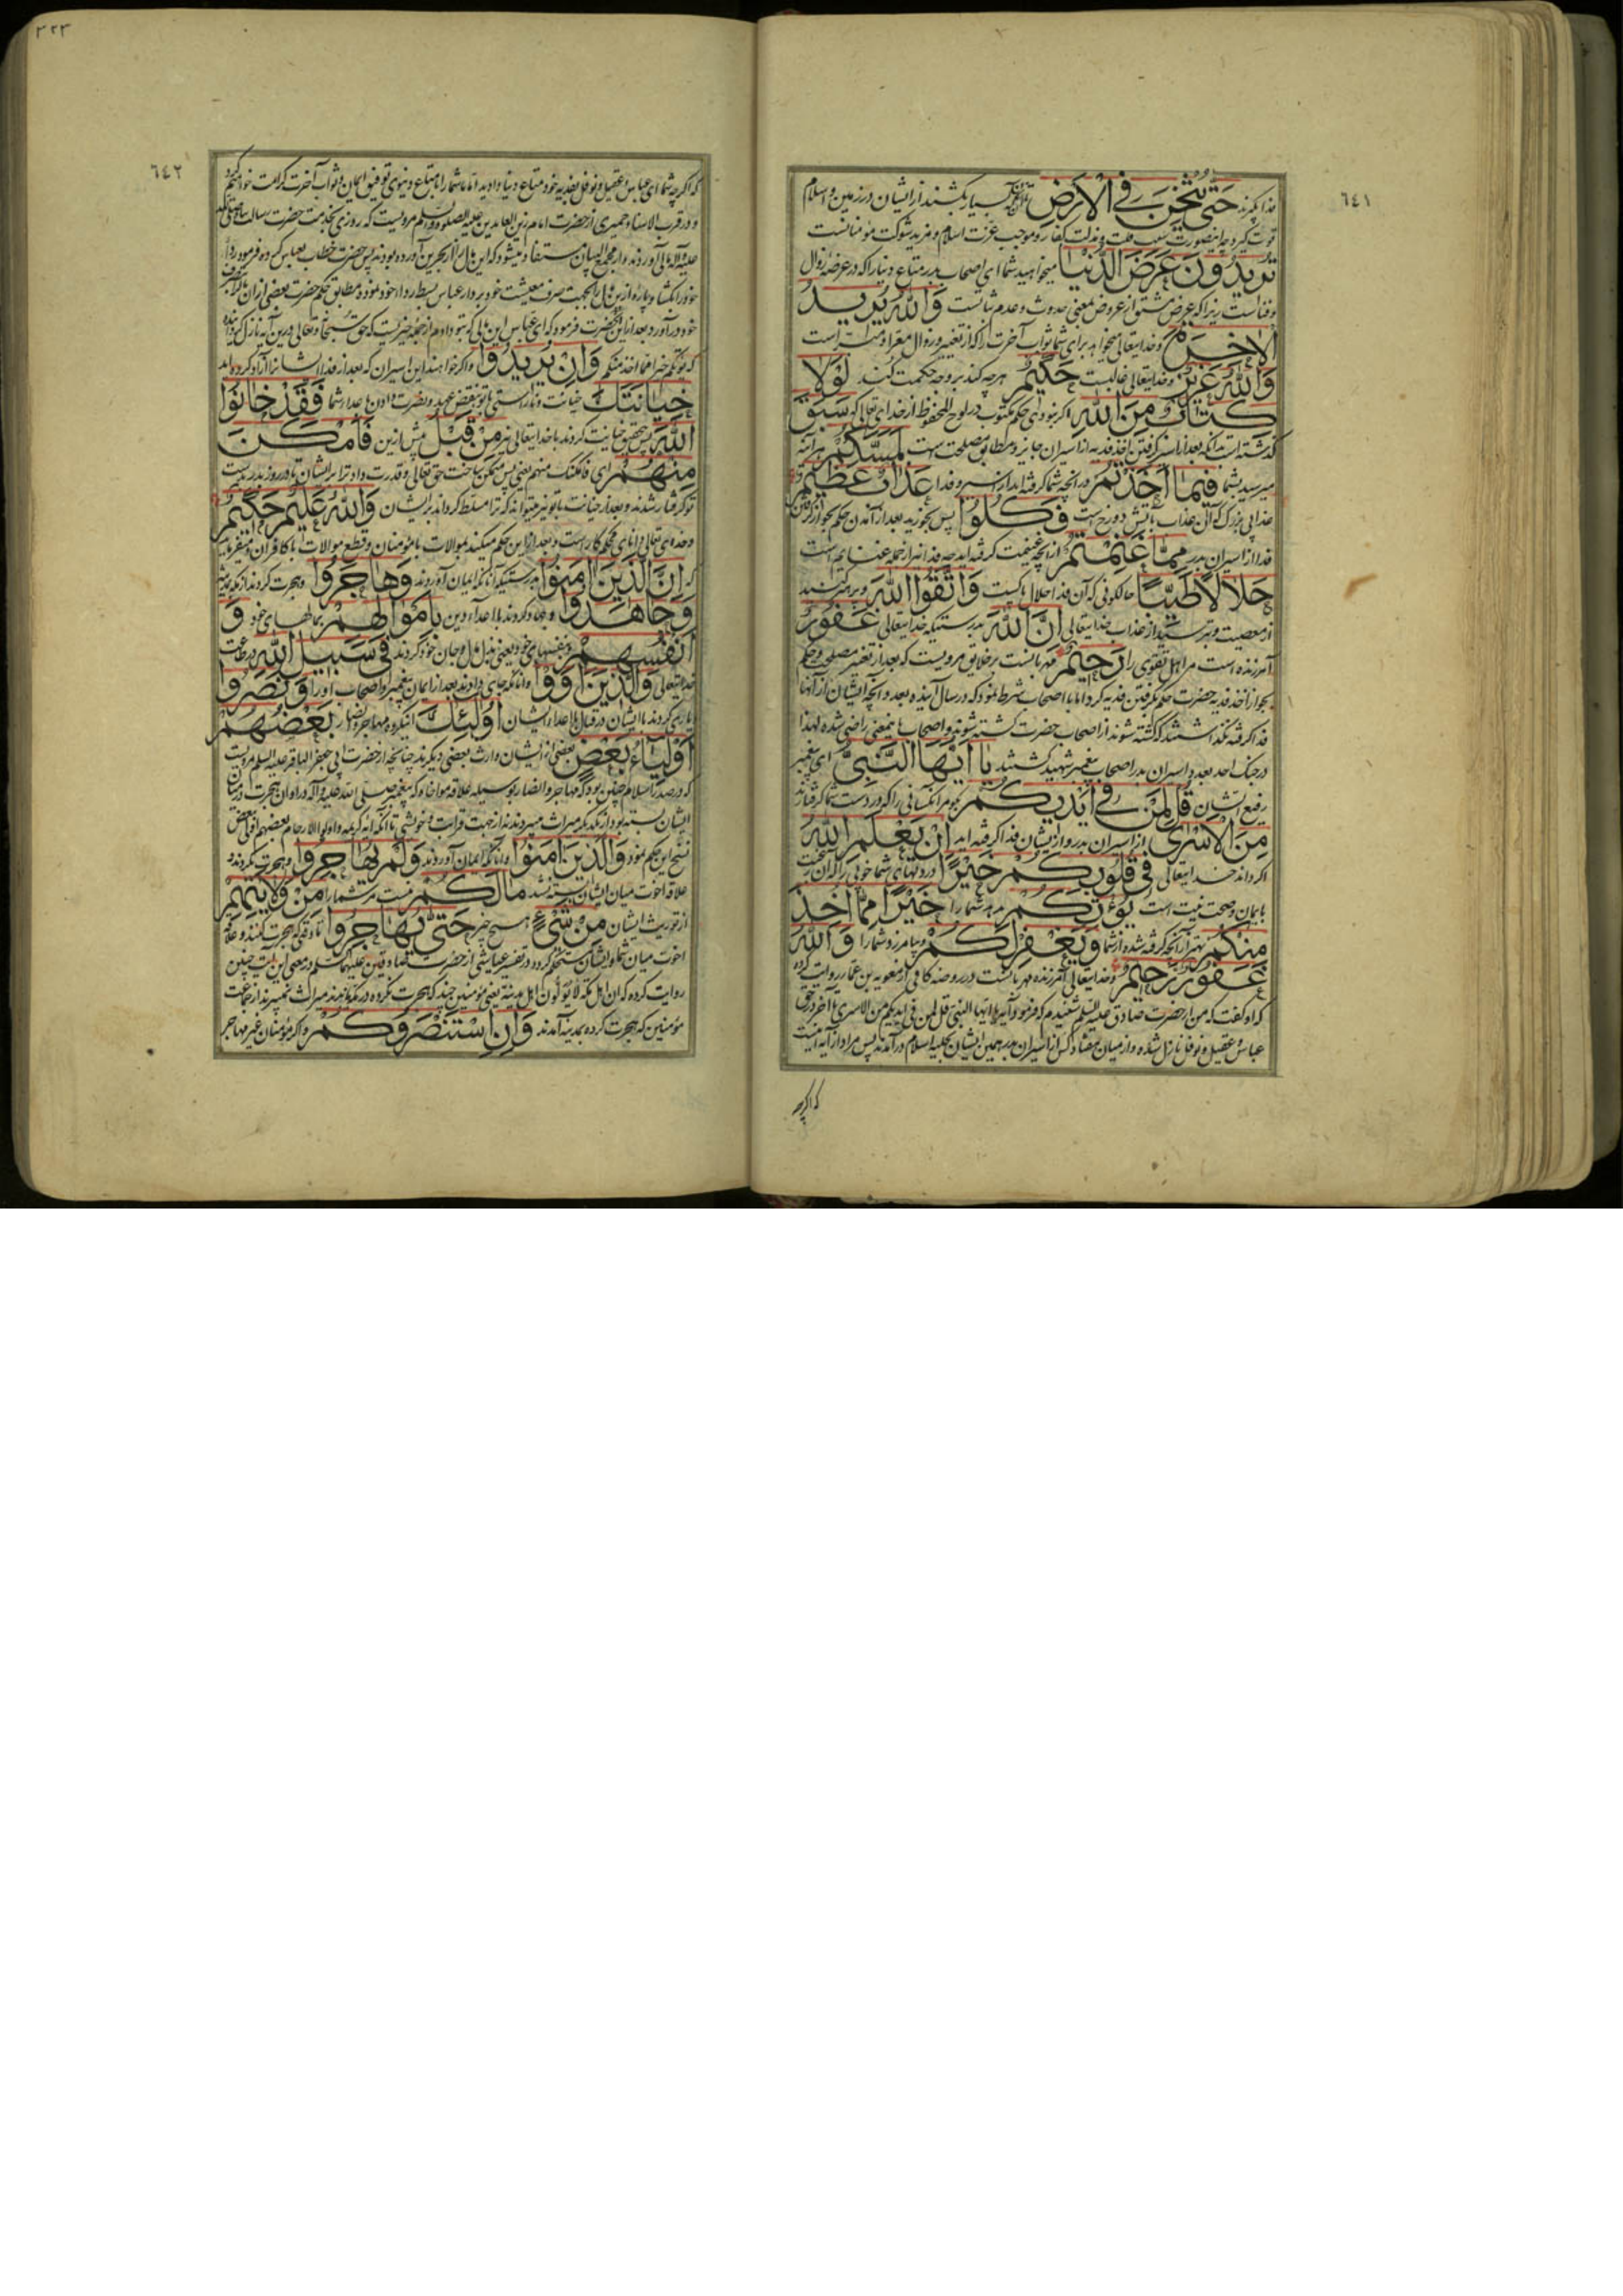 ٦٤١
فدا گیرند حَتّى يُثْخِنَ فِي الْأَرْضِ تا آنکه بسیار بکشند از ایشان در زمین و اسلام
قوت گیرد چه اینصورت سبب قلت و مذلت کفار و موجب عزت اسلام و مزید شوکت مؤمنانست
تُرِيدُونَ عَرَضَ الدُّنْيَا میخواهید شما ای اصحاب بدر متاع دنیا را که در عرضه زوال
و فناست زیرا که عرض مشتق از عروض بمعنی حدوث و عدم ثباتست وَاللّٰهُ يُرِيدُ
الْآخِرَةَ و خدایتعالی میخواهد برای شما ثواب آخرت را که از تغییر و زوال معرا و مبراست
وَاللّٰهُ عَزِيزٌ و خدایتعالی غالبست حَكِيمٌ هرچه کند بر وجه حکمت کند لَوْلَا
كِتَابٌ مِنَ اللّٰهِ اگر نبودی حکم مکتوب در لوح المحفوظ از خدای تعالی که سَبَقَ
گذشته است بدانکه بعد از اسیر گرفتن اخذ فدیه از اسیران جایز و مطابق مصلحت است لَمَسَّكُمْ هرآینه
میرسید بشما فِيمَا أَخَذْتُمْ در آنچه شما گرفته اید از اسیر و فدا عَذَابٌ عَظِيمٌ
عذابی بزرگ که آن عذاب بآتش دوزخ است فَكُلُوا پس بخورید بعد از آمدن حکم بجواز گرفتن
فدا از اسیران بدر مِمَّا غَنِمْتُمْ از آنچه غنیمت گرفته اید چه فدا نیز از جمله غنایم است
حَلَالًا طَيِّبًا حالکونی که آن فدا حلال پاکیست وَاتَّقُوا اللّٰهَ و بپرهیزید
از معصیت و بترسید از عذاب خدایتعالی إِنَّ اللّٰهَ بدرستیکه خدایتعالی غَفُورٌ
آمرزنده است مر اهل تقوی را رَحِيمٌ مهربانست بر خلایق مرویست که بعد از تغییر مصلحت و حکم
بجواز اخذ فدیه حضرت حکم بگرفتن فدیه کرد اما با اصحاب شرط نمود که در سال آینده بعدد آنچه ایشان از آنها
فدا گرفته نکشتند کشته شوند از اصحاب حضرت کشته شوند و اصحاب باینمعنی راضی شده لهذا
در جنگ احد بعدد اسیران بدر اصحاب پیغمبر شهید گشتند يَا أَيُّهَا النَّبِيُّ ای پیغمبر
رفیع الشان قُلْ لِمَنْ فِي أَيْدِيكُمْ بگو مر آنکسانی را که در دست شما گرفتارند
مِنَ الْأَسْرَى از اسیران بدر و از ایشان فدا گرفته اید إِنْ يَعْلَمِ اللّٰهُ
اگر داند خدایتعالی فِي قُلُوبِكُمْ خَيْرًا در دلهای شما خوبی را که آن رغبت
بایمان و صحت نیت است يُؤْتِكُمْ بدهد شما را خَيْرًا مِمَّا أُخِذَ
مِنْكُمْ بهتر از آنچه گرفته شده از شما وَيَغْفِرْ لَكُمْ و بیامرزد شما را وَاللّٰهُ
غَفُورٌ رَحِيمٌ و خدایتعالی آمرزنده مهربانست در روضه کافی از معویه بن عمار روایت کرده
که او گفت که من از حضرت صادق علیه السلم شنیدم که فرمود آیه یا ایها النبی قل لمن فی ایدیکم من الاسری تا آخر در حق
عباس و عقیل و نوفل نازل شده و از میان هفتاد کس از اسیران بدر همین ایشان بحلیه اسلام درآمدند پس مراد از آیه اینست
که اگرچه
٣٢٣
٦٤٢
که اگرچه شما ای عباس و عقیل و نوفل بفدیه خود متاع دنیا دادید اما ما شما را با متاع دنیوی توفیق ایمان و ثواب آخرت کرامت خواهیم کرد
و در قرب الاسناد حمیری از حضرت امام زین العابدین علیه الصلوة و السلم مرویست که روزی بخدمت حضرت رسالت صلی الله
علیه و آله مالی آوردند و از مجمع البیان مستفاد میشود که این مال را از بحرین آورده بودند پس حضرت خطاب بعباس کرده فرمود ردای
خود را بگشا و پاره از این مال را بجهت صرف معیشت خود بردار عباس بسط رداء خود نموده مطابق حکم حضرت بعضی از آن مال را تصرف
خود درآورد بعد از آن حضرت فرمود که ای عباس این مالی که بتو دادم از جمله چیزیست که حق سبحانه و تعالی درین آیه نازل کرده
که یؤتکم خیرا مما اخذ منکم وَإِنْ يُرِيدُوا و اگر خواهند این اسیران که بعد از فدا ایشانرا آزاد کرده اید
خِيَانَتَكَ خیانت و ناراستی با تو بنقض عهد و نصرت دادن باعدا شما فَقَدْ خَانُوا
اللّٰهَ پس بتحقیق خیانت کردند با خدایتعالی نیز مِنْ قَبْلُ پیش ازین فَأَمْكَنَ
مِنْهُمْ ای فامکنک منهم یعنی پس متمکن ساخت حق تعالی و قدرت داد ترا بر ایشان تا در روز بدر بدست
تو گرفتار شدند و بعد از خیانت با تو نیز میتواند که ترا مسلط گرداند بر ایشان وَاللّٰهُ عَلِيمٌ حَكِيمٌ
و خدای تعالی دانای محکم کار است و بعد ازین حکم میکند بموالات با مؤمنان و قطع موالات با کافران و میفرماید
که إِنَّ الَّذِينَ آمَنُوا بدرستیکه آنانکه ایمان آوردند وَهَاجَرُوا و هجرت کردند از مکه بمدینه
وَجَاهَدُوا و جهاد کردند با اعداء دین بِأَمْوَالِهِمْ بمالهای خود وَ
أَنْفُسِهِمْ و بنفسهای خود یعنی بذل مال و جان خود کردند فِي سَبِيلِ اللّٰهِ در طاعت
خدایتعالی وَالَّذِينَ آوَوْا و آنانکه جای دادند بعد از ایمان پیغمبر و اصحاب او را وَنَصَرُوا
یاری کردند با ایشان در قتال با اعداء ایشان أُولٰئِكَ اینگروه مهاجر و انصار بَعْضُهُمْ
أَوْلِيَاءُ بَعْضٍ بعضی از ایشان وارث بعضی دیگرند چنانچه از حضرت ابی جعفر الباقر علیه السلم مرویست
که در صدر اسلام چنین بود که مهاجر و انصار بوسیله علاقه مواخاة که پیغمبر صلی الله علیه و آله در اوان هجرت در میان
ایشان بسته بود از یکدیگر میراث میبردند نه از جهت قرابت و خویشی تا آنکه آیه کریمه و اولوا الارحام بعضهم اولی ببعض
نسخ این حکم نمود وَالَّذِينَ آمَنُوا و آنانکه ایمان آوردند وَلَمْ يُهَاجِرُوا و هجرت نکردند و
علاقه اخوت میان ایشان بسته نشد مَا لَكُمْ نیست مر شما را مِنْ وَلَايَتِهِمْ
از توریث ایشان مِنْ شَيْءٍ هیچ چیز حَتَّى يُهَاجِرُوا تا وقتی که هجرت کنند و علاقه
اخوت میان شما و ایشان مستحکم گردد و در تفسیر عیاشی از حضرت صادقین علیهما السلم در معنی این آیت چنین
روایت کرده که ان اهل مکة لا یولون اهل المدینة یعنی مؤمنین چند که هجرت نکرده در مکه ماندند میراث نمیبرند از جماعت
مؤمنین که هجرت کرده بمدینه آمدند وَإِنِ اسْتَنْصَرُوكُمْ و اگر مؤمنان غیر مهاجر